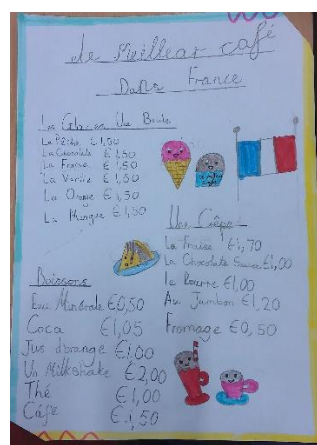 Le Meillear café
Dans France
La Glace Une Boule
La Pêche €1,50
La Chocolate €1,50
La Fraise €1,50
La Vanille €1,50
La Orange €1,50
La Mangue €1,50
Une Crêpe
La Fraise €1,70
La Chocolate Sauce €1,00
le Beurre €1,00
Au Jambon €1,20
Fromage €0,50
Boissons
Eau Minérale €0,50
Coca €1,05
Jus d'orange €1,00
Un Milkshake €2,00
Thé €1,00
Cáfe €1,50